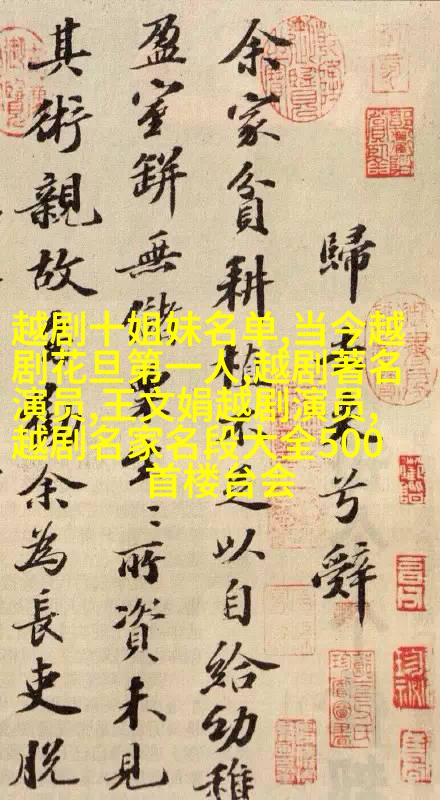 越剧十姐妹名单,当今越
剧花旦第一人,越剧著名
演员,王文娟越剧演员,
越剧名家名段大全500
首楼台会
歸去来兮辭
余家貧耕植不足以自給幼稚
盈室缾無儲粟生〻所資未見
其術親故多勸余為長吏脱